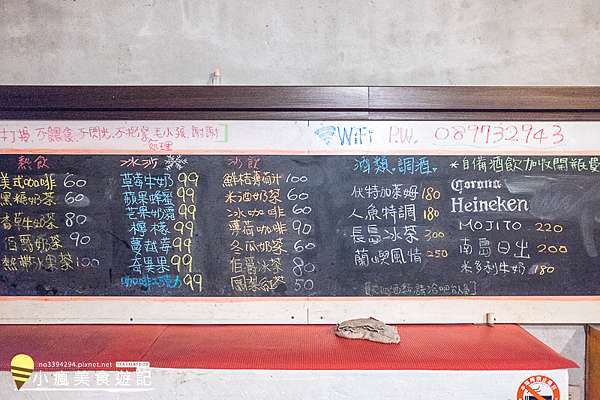 不餵食、不閃光、不把
WiFi P.W. 089732943
熱飲
美式咖啡 60
黑糖奶茶 60
香草奶茶 80
伯爵奶茶 90
熱帶水果茶 100
冰沙
草莓牛奶 99
蘋果蜂蜜 99
芒果奶 99
檸檬 99
蔓越莓 99
百果果 99
咖啡巧克力 99
冰飲
100
木酒奶茶 60
冰咖啡 60
薄荷咖啡 90
冬瓜奶茶 60
伯爵冰茶 80
50
酒類、調酒。
伏特加萊姆 180
人魚特調 180
長島冰茶 300
蘭嶼風情 250
*自備酒飲加收開瓶費
Corona
Heineken
MOJITO 220
南島日出 200
180
no3394294.pixnet.net
小瘋美食遊記